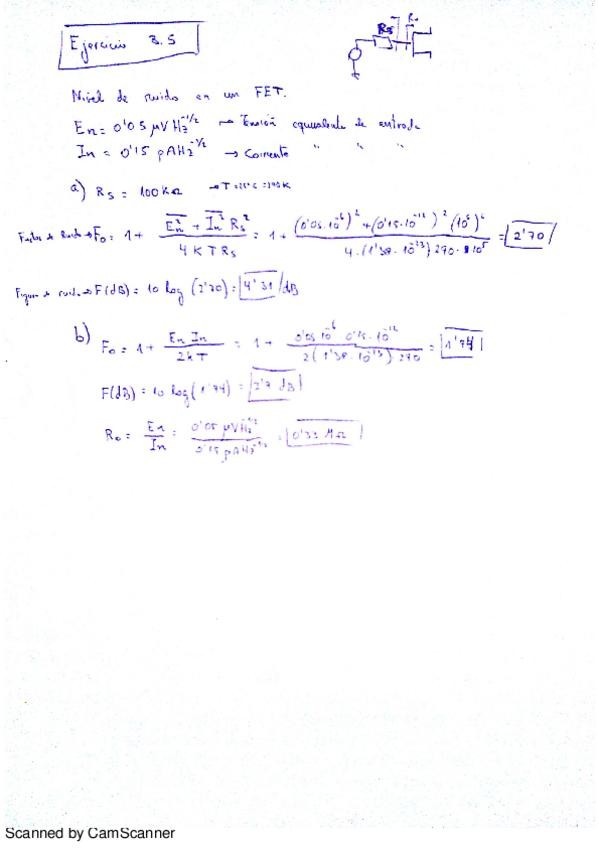 Ejercicio 3.5
Rs R.
Nivel de ruido en un FET.
En = 0'05 μV Hz^-1/2 → Tensión equivalente de entrada
In = 0'15 pA Hz^-1/2 → Corriente " " "
a) Rs = 100 KΩ
Factor de Ruido → Fo = 1 + (En² + In² Rs²) / (4 K T Rs) = 1 + ((0'05·10^-6)² + (0'15·10^-12)² (10^5)²) / (4·(1'38·10^-23) 290·10^5) = 2'70
Figura de ruido → F(dB) = 10 log (2'70) = 4'31 dB
b) Fo = 1 + (En In) / (2kT) = 1 + (0'05 10^-6 0'15·10^-12) / (2(1'38·10^-23) 290) = 1'94
F(dB) = 10 log (1'94) = 2'7 dB
Ro = En / In = (0'05 μV Hz^-1/2) / (0'15 pA Hz^-1/2) = 0'33 MΩ
Scanned by CamScanner